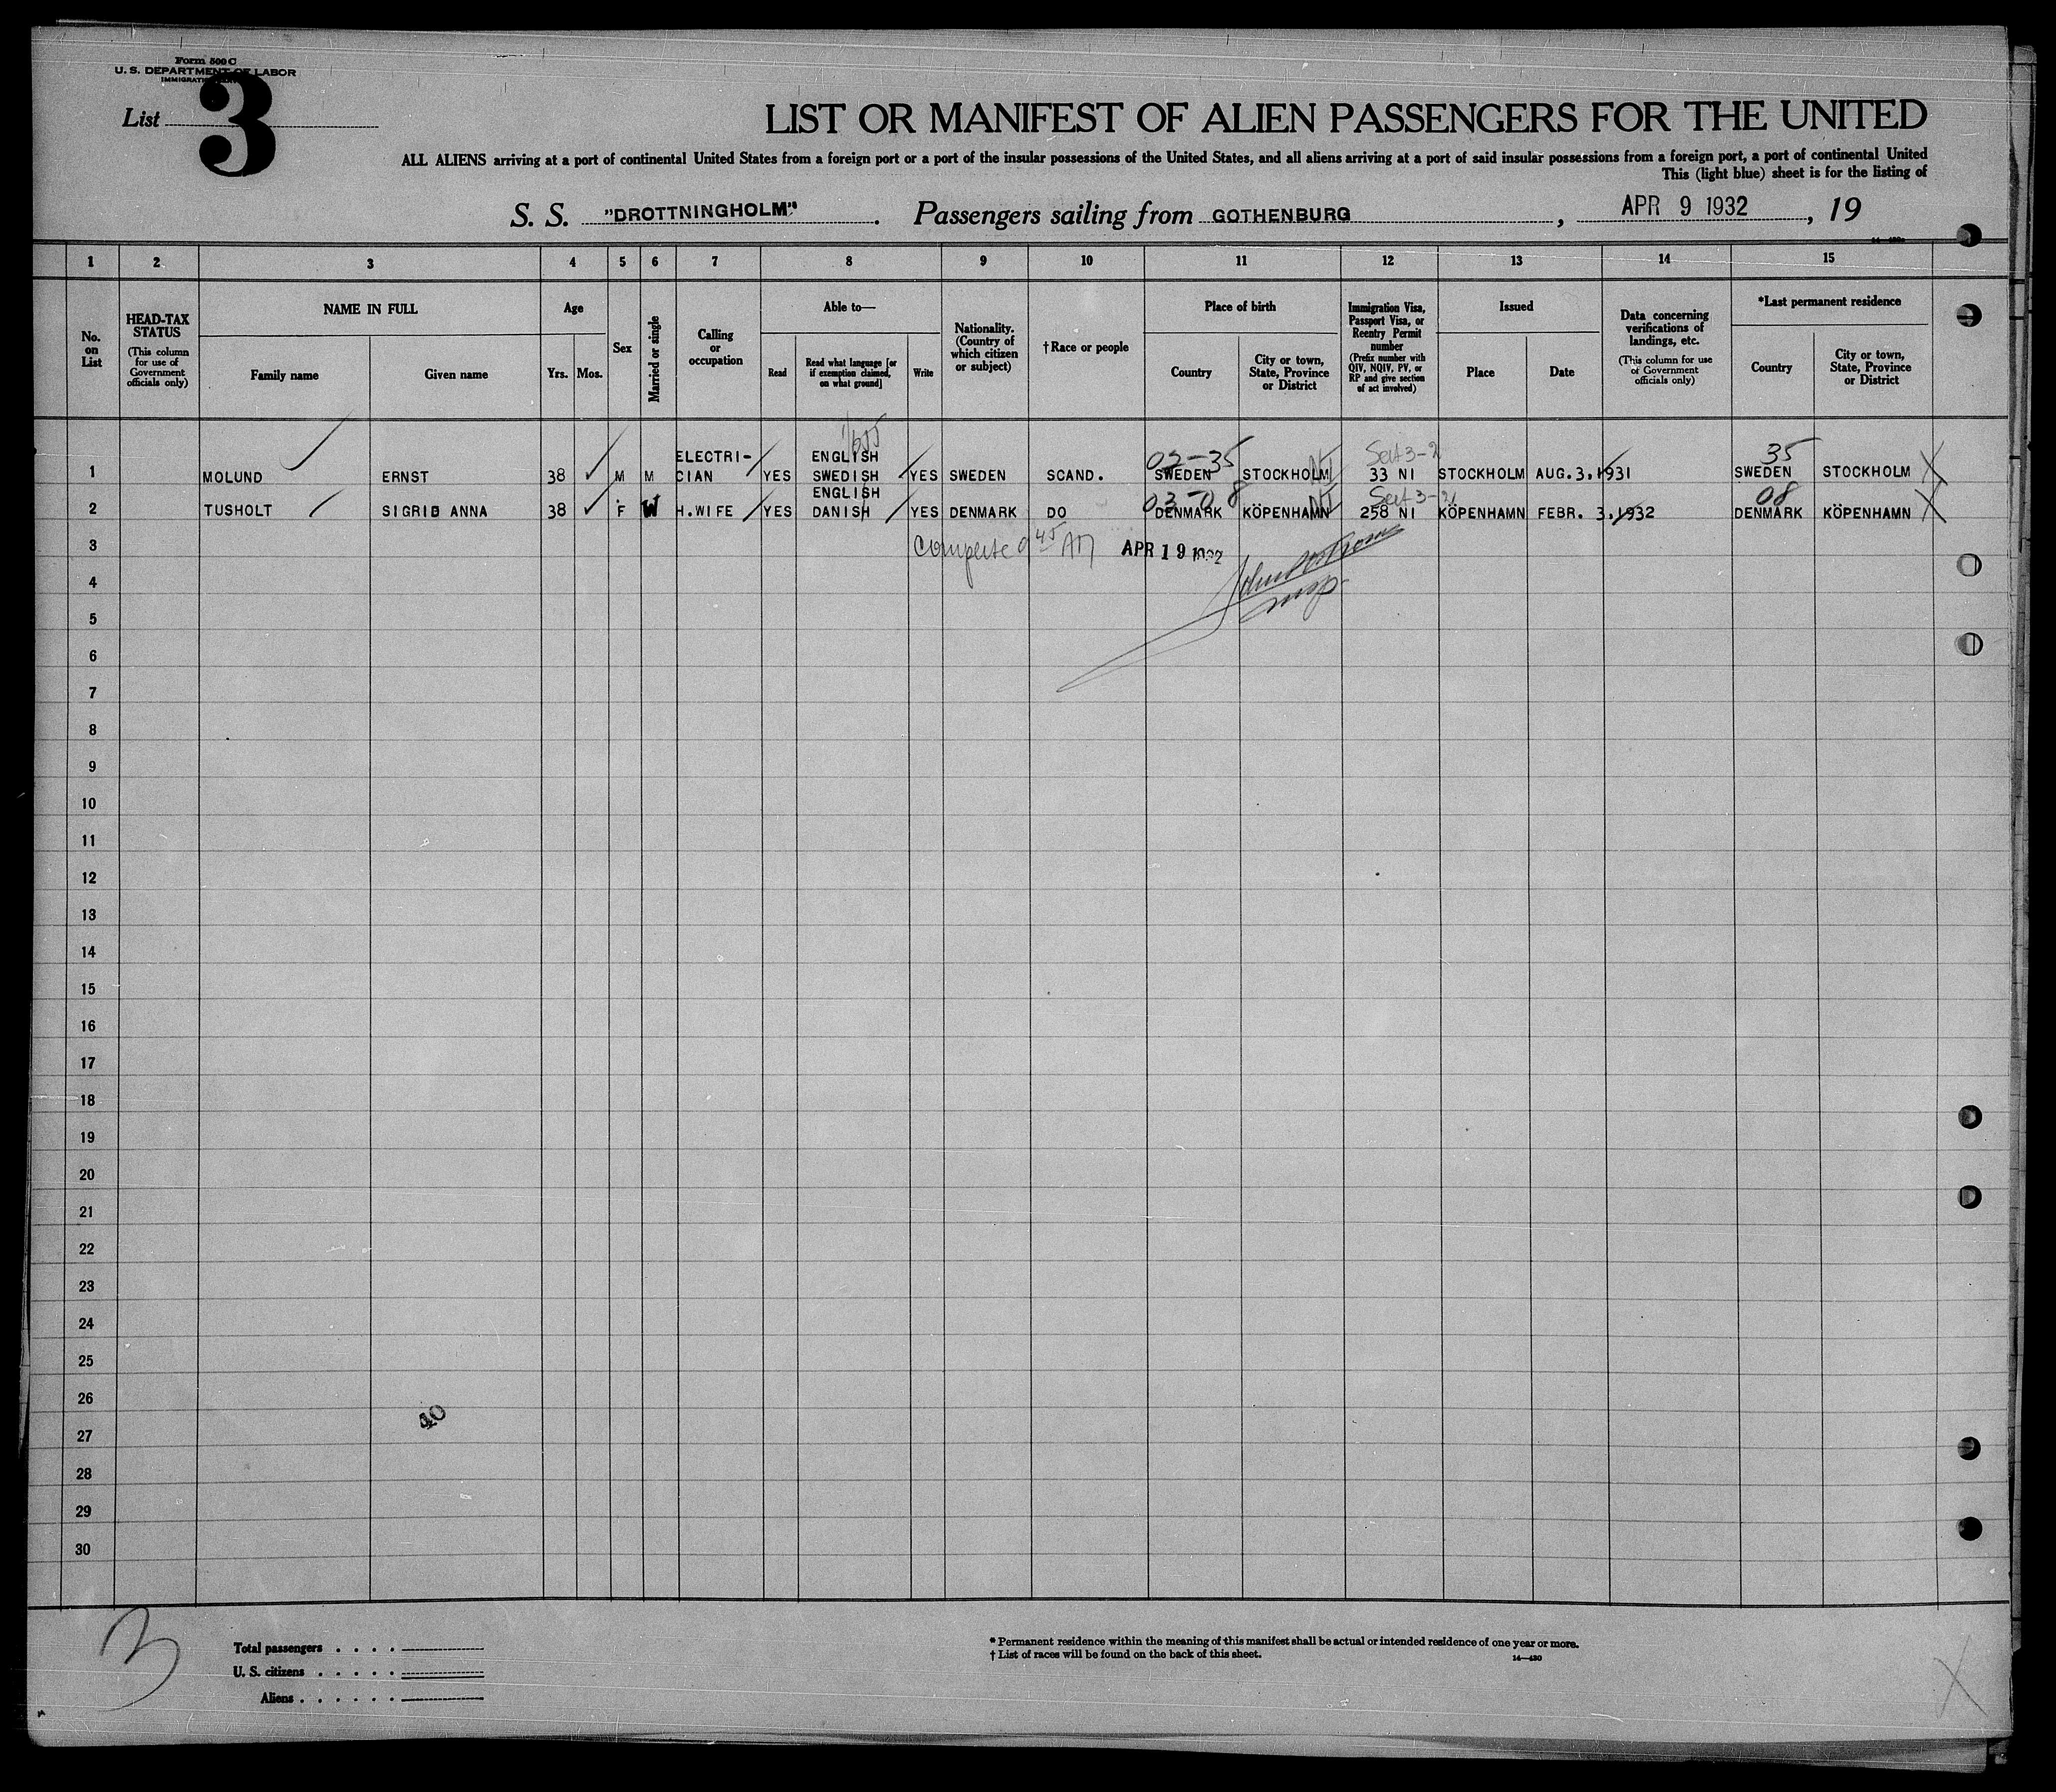 Form 500 C
U. S. DEPARTMENT OF LABOR
List 3
LIST OR MANIFEST OF ALIEN PASSENGERS FOR THE UNITED
ALL ALIENS arriving at a port of continental United States from a foreign port or a port of the insular possessions of the United States, and all aliens arriving at a port of said insular possessions from a foreign port, a port of continental United
This (light blue) sheet is for the listing of
S. S. "DROTTNINGHOLM". Passengers sailing from GOTHENBURG, APR 9 1932, 19
1 2 3 4 5 6 7 8 9 10 11 12 13 14 15
No. on List
HEAD-TAX STATUS
(This column for use of Government officials only)
NAME IN FULL
Family name
Given name
Age
Yrs. Mos.
Sex
Married or single
Calling or occupation
Able to—
Read
Read what language [or if exemption claimed, on what ground]
Write
Nationality. (Country of which citizen or subject)
†Race or people
Place of birth
Country
City or town, State, Province or District
Immigration Visa, Passport Visa, or Reentry Permit number
(Prefix number with QIV, NQIV, PV, or RP and give section of act involved)
Issued
Place
Date
Data concerning verifications of landings, etc.
(This column for use of Government officials only)
*Last permanent residence
Country
City or town, State, Province or District
02-35 Sect 3-2 35
1 MOLUND ERNST 38 M M ELECTRI-CIAN YES ENGLISH SWEDISH YES SWEDEN SCAND. SWEDEN STOCKHOLM 33 NI STOCKHOLM AUG.3,1931 SWEDEN STOCKHOLM
03-08 Sect 3-2 08
2 TUSHOLT SIGRID ANNA 38 F W H.WIFE YES ENGLISH DANISH YES DENMARK DO DENMARK KÖPENHAMN 258 NI KÖPENHAMN FEBR. 3,1932 DENMARK KÖPENHAMN
3 Complete 9 45 AM APR 19 1932
4
5
6
7
8
9
10
11
12
13
14
15
16
17
18
19
20
21
22
23
24
25
26
40
27
28
29
30
3
Total passengers . . . .
U. S. citizens . . . . .
Aliens . . . . . .
* Permanent residence within the meaning of this manifest shall be actual or intended residence of one year or more.
† List of races will be found on the back of this sheet.
14—430